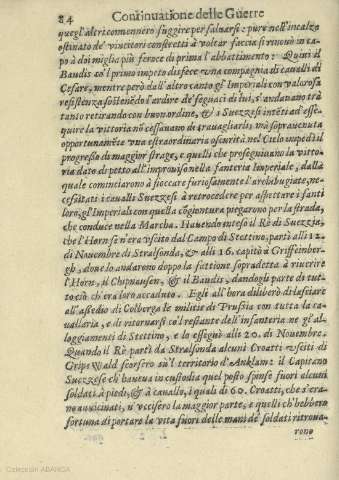 84 Continuatione delle Guerre
quegl'altri convennero fuggire per salvarsi: pure nell'incalzo
ostinato de' vincitori constretti à voltar faccia si rinouò in ca-
po à doi miglia più feroce di prima l'abbattimento: Quiui il
Baudis co'l primo impeto disfece vna compagnia di caualli di
Cesare, mentre però dall'altro canto gl'Imperiali con valorosa
resistenza sostenēdo l'ardire de' seguaci di lui, s'andauano trà
tanto retirando con buon ordine, & i Suezzesi intēti ad esse-
quire la vittoria nō cessauano di trauagliarli; mà soprauenuta
opportunamēte vna estraordinaria oscurità nel Cielo impedì il
progresso di maggior strage, e quelli che proseguiano la vitto-
ria dato di petto all'improuiso nella fanteria Imperiale, dalla
quale cominciarono à fioccare furiosamente l'archibugiate, ne-
cessitati i caualli Suezzesi à retrocedere per aspettare i fanti
loro, gl'Imperiali con quella cōgiontura piegarono per la strada,
che conduce nella Marcha. Hauendo inteso il Rè di Suezzia,
che l'Horn se n'era vscito dal Campo di Stettino, partì alli 12.
di Nouembre di Stralsonda, & alli 16. capitò à Griffeinber-
gh, doue lo andarono doppo la fattione sopradetta à riuerire
l'Horn, il Chipnausen, & il Baudis, dandogli parte di tut-
to ciò ch'era loro accaduto. Egli all'hora diliberò di lasciare
all'assedio di Colberga le militie di Prussia con tutta la ca-
uallaria, e di ritornarsi co'l restante dell'infanteria ne gl'al-
loggiamenti di Stettino, e lo esseguì alli 20. di Nouembre.
Quando il Rè partì da Stralsonda alcuni Croatti vsciti di
Gripswald scorsero sù'l territorio d'Anklam: il Capitano
Suezzese ch'haueua in custodia quel posto spinse fuori alcuni
soldati à piedi, & à cauallo, i quali di 60. Croatti, che s'era-
no auuicinati, n'vccisero la maggior parte, e quelli ch'hebbero
fortuna di portare la vita fuori delle mani de' soldati ritroua-
rono
Colección ABANCA